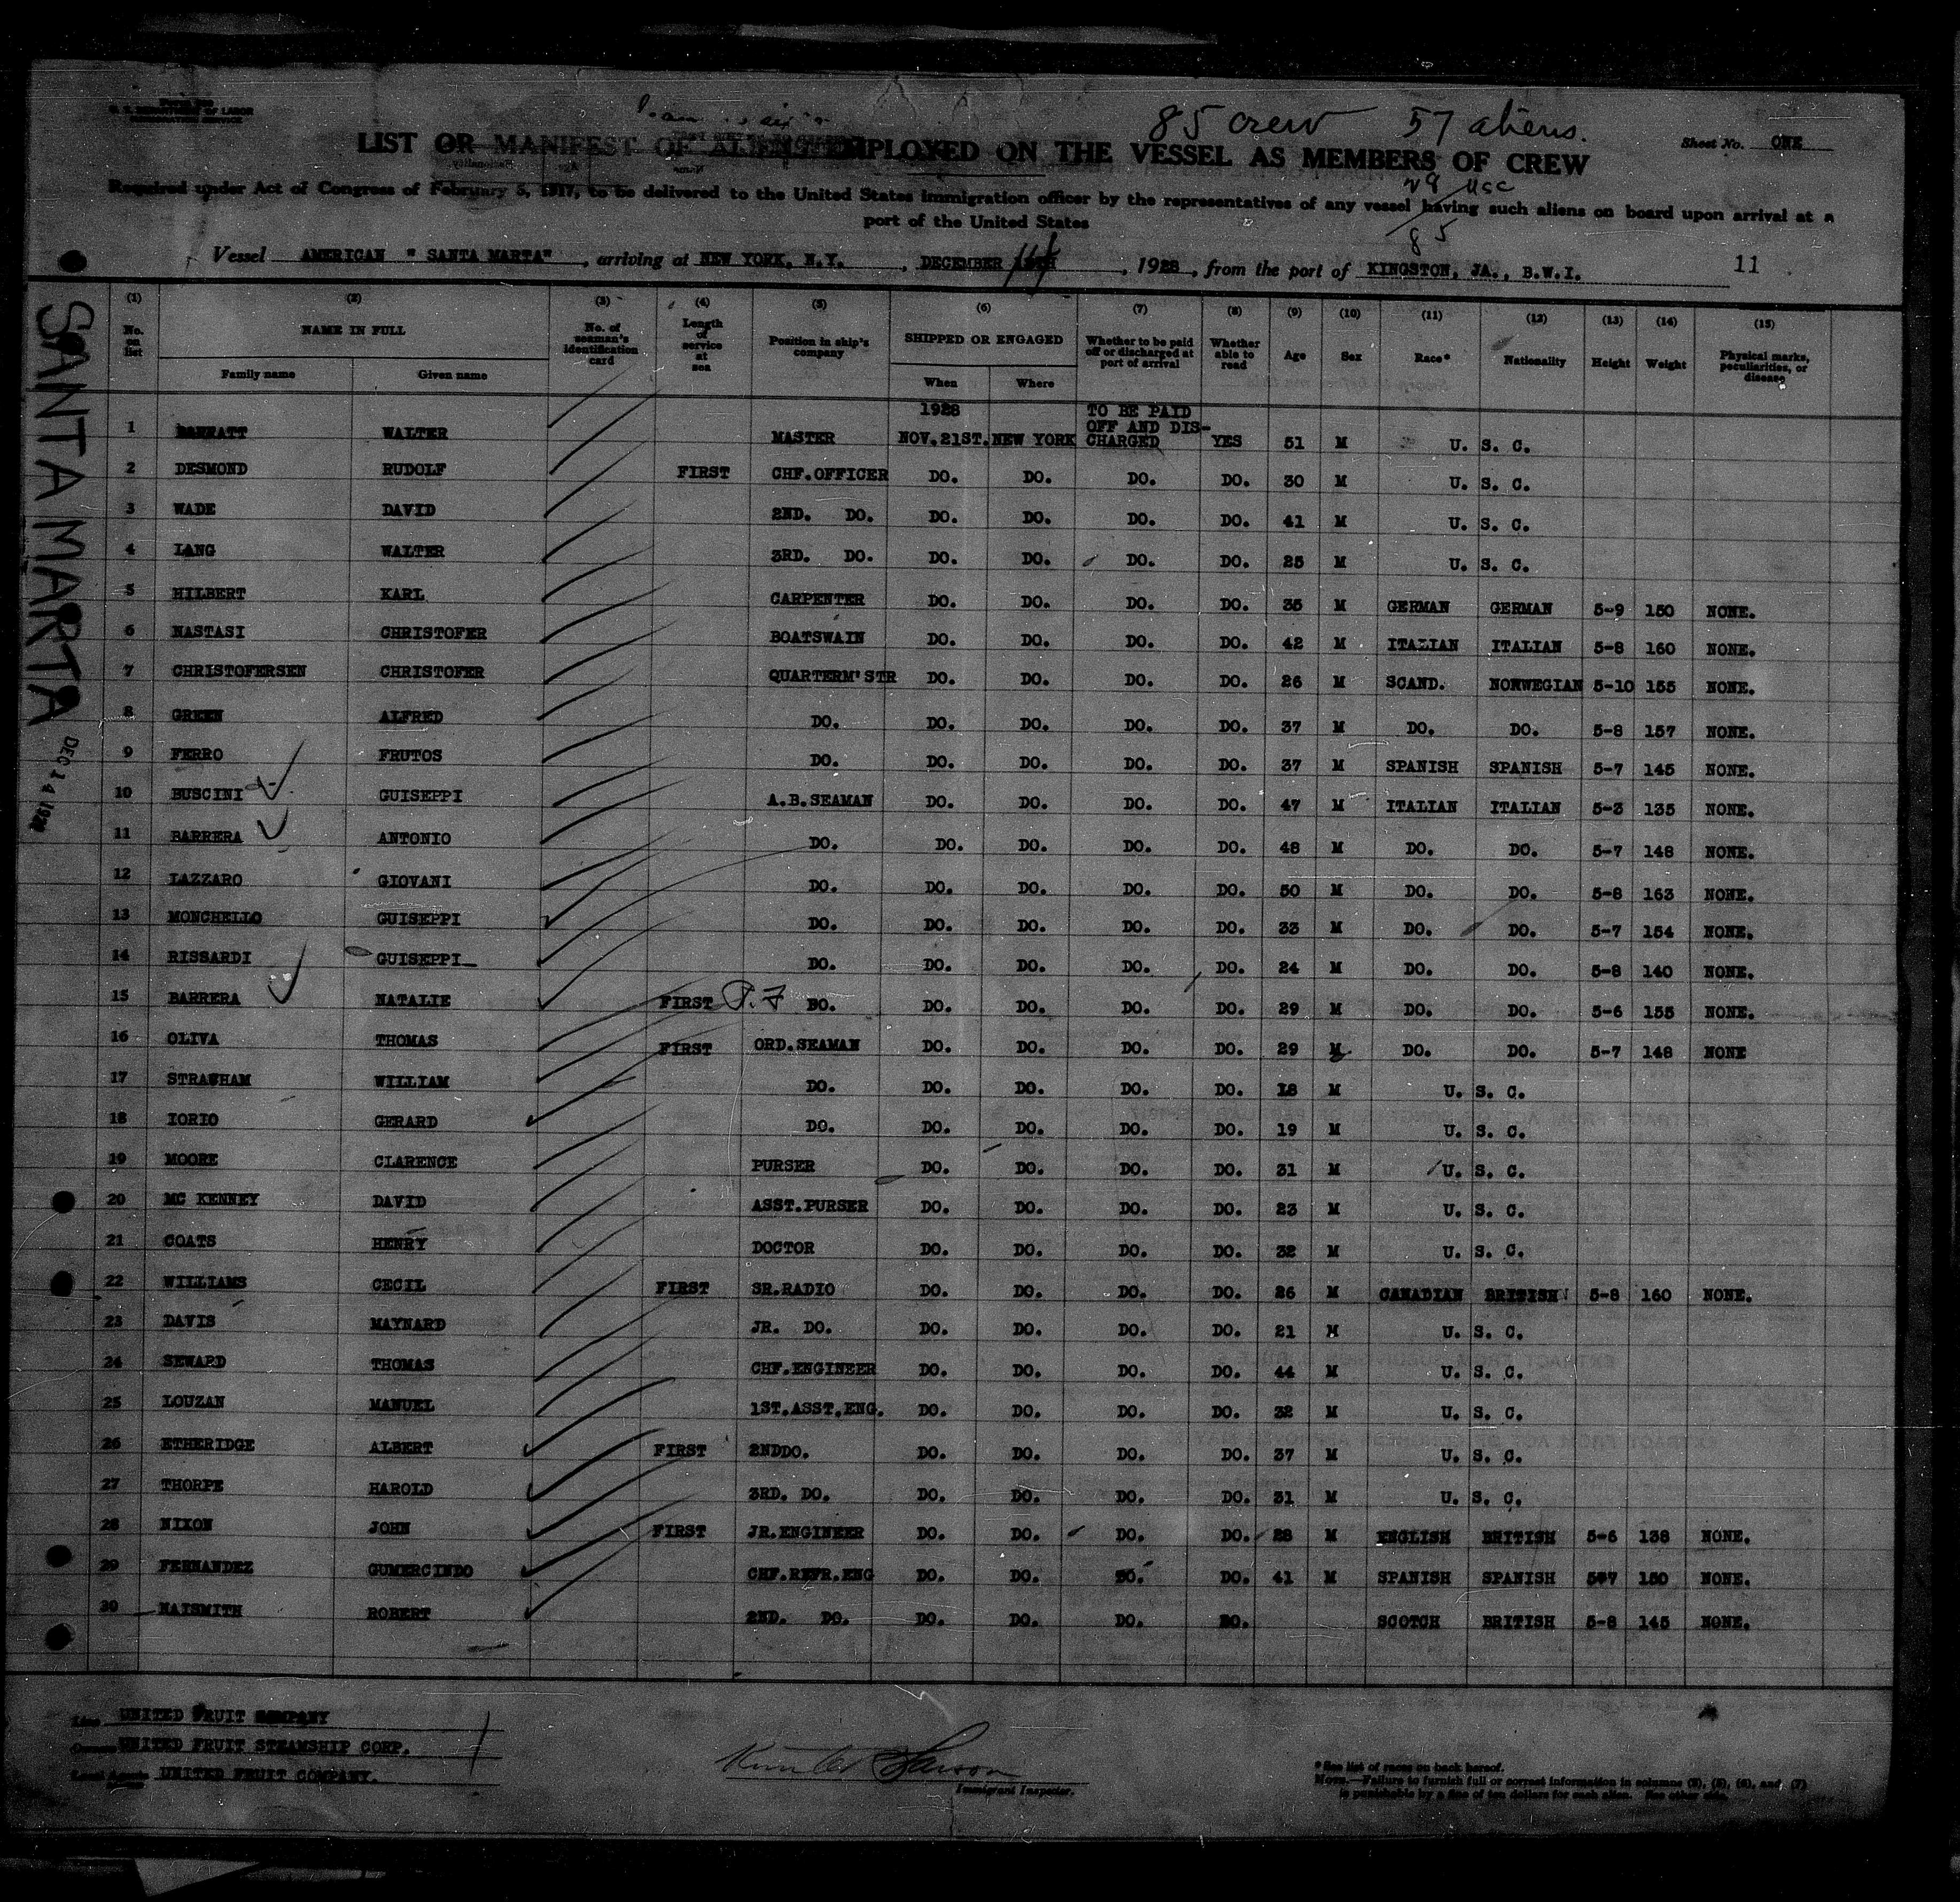 85 crew 57 aliens.
Sheet No. ONE
LIST OR MANIFEST OF ALIENS EMPLOYED ON THE VESSEL AS MEMBERS OF CREW
Required under Act of Congress of February 5, 1917, to be delivered to the United States immigration officer by the representatives of any vessel having such aliens on board upon arrival at a
port of the United States
28 usc
85
Vessel AMERICAN " SANTA MARTA" , arriving at NEW YORK, N.Y. , DECEMBER 14 , 1928 , from the port of KINGSTON, JA., B.W.I. 11
SANTA MARTA
DEC 14 1928
(1) (2) (3) (4) (5) (6) (7) (8) (9) (10) (11) (12) (13) (14) (15)
No. on list NAME IN FULL Family name Given name No. of seaman's identification card Length of service at sea Position in ship's company SHIPPED OR ENGAGED When Where Whether to be paid off or discharged at port of arrival Whether able to read Age Sex Race* Nationality Height Weight Physical marks, peculiarities, or disease
1928 TO BE PAID OFF AND DIS-
1 WALTER MASTER NOV.21ST. NEW YORK CHARGED YES 51 M U. S. C.
2 DESMOND RUDOLF FIRST CHF.OFFICER DO. DO. DO. DO. 30 M U. S. C.
3 WADE DAVID 2ND. DO. DO. DO. DO. DO. 41 M U. S. C.
4 LANG WALTER 3RD. DO. DO. DO. DO. DO. 25 M U. S. C.
5 HILBERT KARL CARPENTER DO. DO. DO. DO. 35 M GERMAN GERMAN 5-9 150 NONE.
6 NASTASI CHRISTOFER BOATSWAIN DO. DO. DO. DO. 42 M ITALIAN ITALIAN 5-8 160 NONE.
7 CHRISTOFERSEN CHRISTOFER QUARTERM'STR DO. DO. DO. DO. 26 M SCAND. NORWEGIAN 5-10 155 NONE.
8 GREEN ALFRED DO. DO. DO. DO. DO. 37 M DO. DO. 5-8 157 NONE.
9 FERRO FRUTOS DO. DO. DO. DO. DO. 37 M SPANISH SPANISH 5-7 145 NONE.
10 BUSCINI GUISEPPI A.B.SEAMAN DO. DO. DO. DO. 47 M ITALIAN ITALIAN 5-3 135 NONE.
11 BARRERA ANTONIO DO. DO. DO. DO. DO. 48 M DO. DO. 5-7 148 NONE.
12 LAZZARO GIOVANI DO. DO. DO. DO. DO. 50 M DO. DO. 5-8 163 NONE.
13 MONCHELLO GUISEPPI DO. DO. DO. DO. DO. 33 M DO. DO. 5-7 154 NONE.
14 RISSARDI GUISEPPI DO. DO. DO. DO. DO. 24 M DO. DO. 5-8 140 NONE.
15 BARRERA NATALIE FIRST P.F DO. DO. DO. DO. DO. 29 M DO. DO. 5-6 155 NONE.
16 OLIVA THOMAS FIRST ORD.SEAMAN DO. DO. DO. DO. 29 M DO. DO. 5-7 148 NONE
17 STRAWHAM WILLIAM DO. DO. DO. DO. DO. 18 M U. S. C.
18 IORIO GERARD DO. DO. DO. DO. DO. 19 M U. S. C.
19 MOORE CLARENCE PURSER DO. DO. DO. DO. 31 M U. S. C.
20 MC KENNEY DAVID ASST.PURSER DO. DO. DO. DO. 23 M U. S. C.
21 COATS HENRY DOCTOR DO. DO. DO. DO. 32 M U. S. C.
22 WILLIAMS CECIL FIRST SR.RADIO DO. DO. DO. DO. 26 M CANADIAN BRITISH 5-8 160 NONE.
23 DAVIS MAYNARD JR. DO. DO. DO. DO. DO. 21 M U. S. C.
24 SEWARD THOMAS CHF.ENGINEER DO. DO. DO. DO. 44 M U. S. C.
25 LOUZAN MANUEL 1ST.ASST.ENG. DO. DO. DO. DO. 32 M U. S. C.
26 ETHERIDGE ALBERT FIRST 2NDDO. DO. DO. DO. DO. 37 M U. S. C.
27 THORPE HAROLD 3RD. DO. DO. DO. DO. DO. 31 M U. S. C.
28 NIXON JOHN FIRST JR.ENGINEER DO. DO. DO. DO. 28 M ENGLISH BRITISH 5-6 138 NONE.
29 FERNANDEZ GUMERCINDO CHF.REFR.ENG DO. DO. DO. DO. 41 M SPANISH SPANISH 5-7 150 NONE.
30 NAISMITH ROBERT 2ND. DO. DO. DO. DO. DO. SCOTCH BRITISH 5-8 145 NONE.
Line UNITED FRUIT COMPANY
Owners UNITED FRUIT STEAMSHIP CORP.
Local Agents UNITED FRUIT COMPANY.
Immigrant Inspector.
* See list of races on back hereof.
NOTE.—Failure to furnish full or correct information in columns (2), (5), (6), and (7)
is punishable by a fine of ten dollars for each alien. See other side.